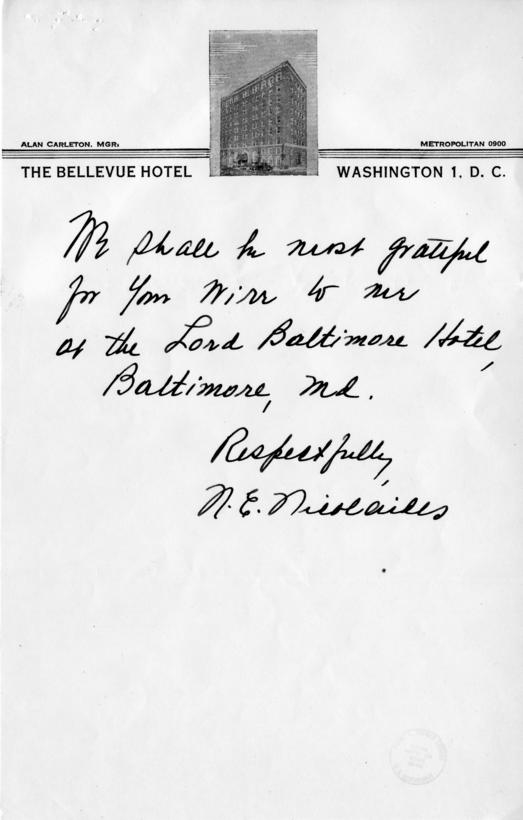 ALAN CARLETON. MGR.
METROPOLITAN 0900
THE BELLEVUE HOTEL
WASHINGTON 1, D. C.
We shall be most grateful
for your wire to me
at the Lord Baltimore Hotel,
Baltimore, Md.
Respectfully,
N. E. Nicolaides